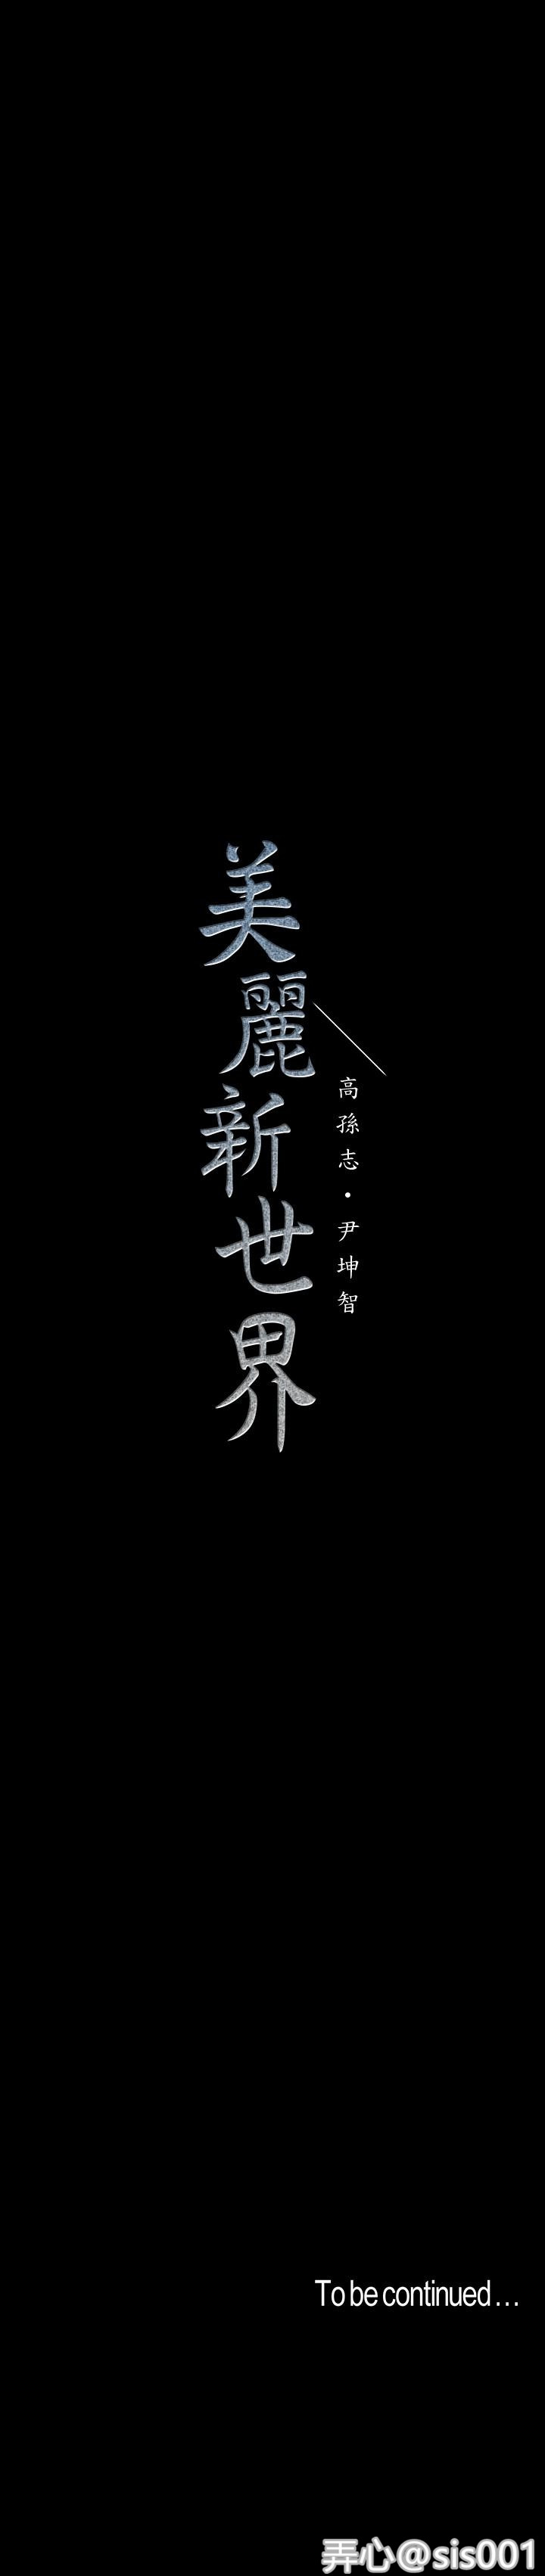 美麗新世界
高孫志・尹坤智
To be continued...
弄心@sis001